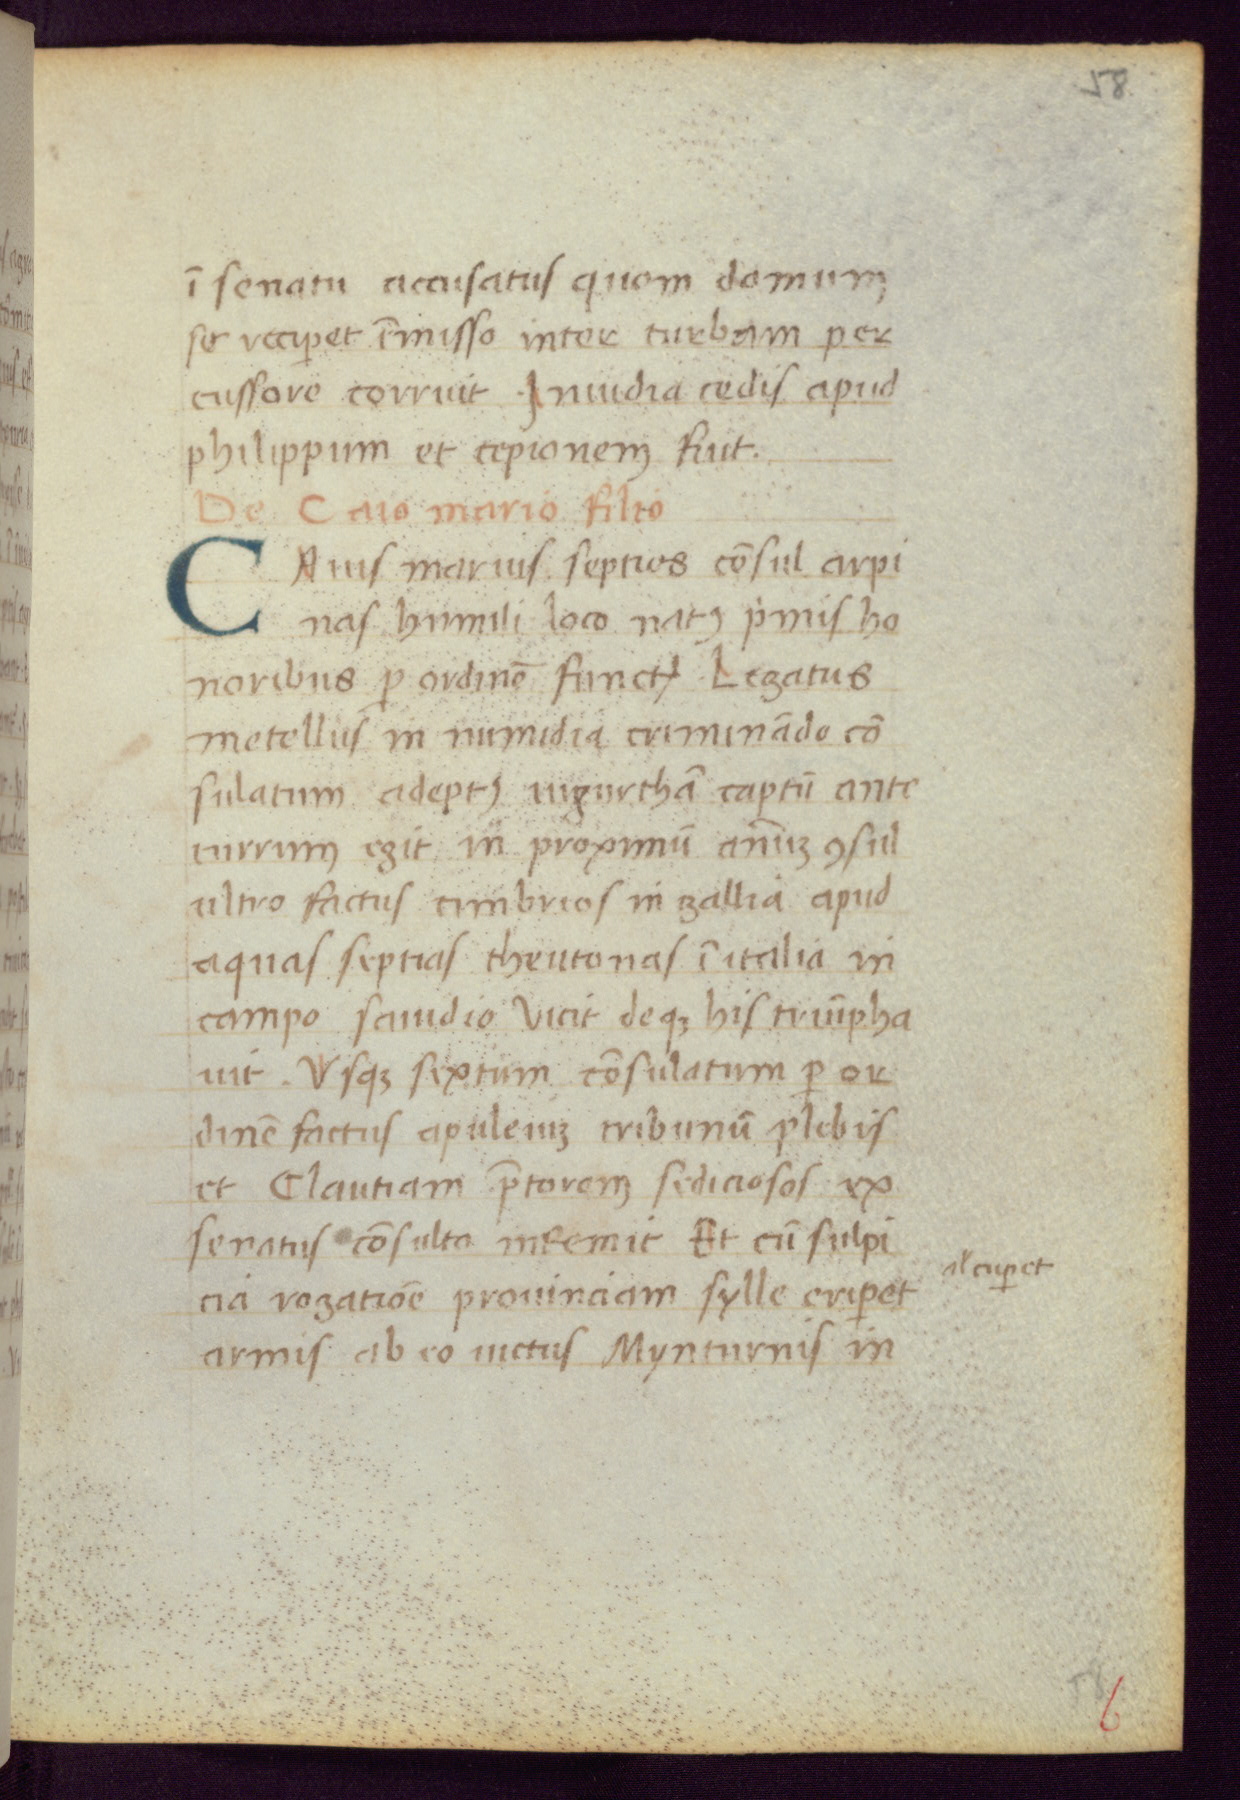 58
ī senatu accusatus quom domum
se recip̄et īmisso inter turbam per
cussore corruit Inuidia cedis apud
philippum et cepionem fuit.
De Caio mario filio
CAius marius septies cōsul arpi
nas humili loco natꝰ pͥmis ho
noribus ꝑ ordinē functꝰ Legatus
metellus in numidia criminādo cō
sulatum adeptꝰ iugurthā captū ante
currum egit in proximū annūꝫ ꝯsul
ultro factus cimbrios in gallia apud
aquas septias theutonas ī italia in
campo scaudio Vicit deqꝫ his triūpha
uit. Vsqꝫ sextum cōsulatum ꝑ or
dinē factus apuleiuꝫ tribunū plebis
et Clautiam p̄torem sediciosos ex
senatus cōsulto interemit Et cū sulpi
cia rogatiōe prouinciam sylle eriꝑet
al' cuꝑet
armis ab eo uictus Mynturnis in
58
6